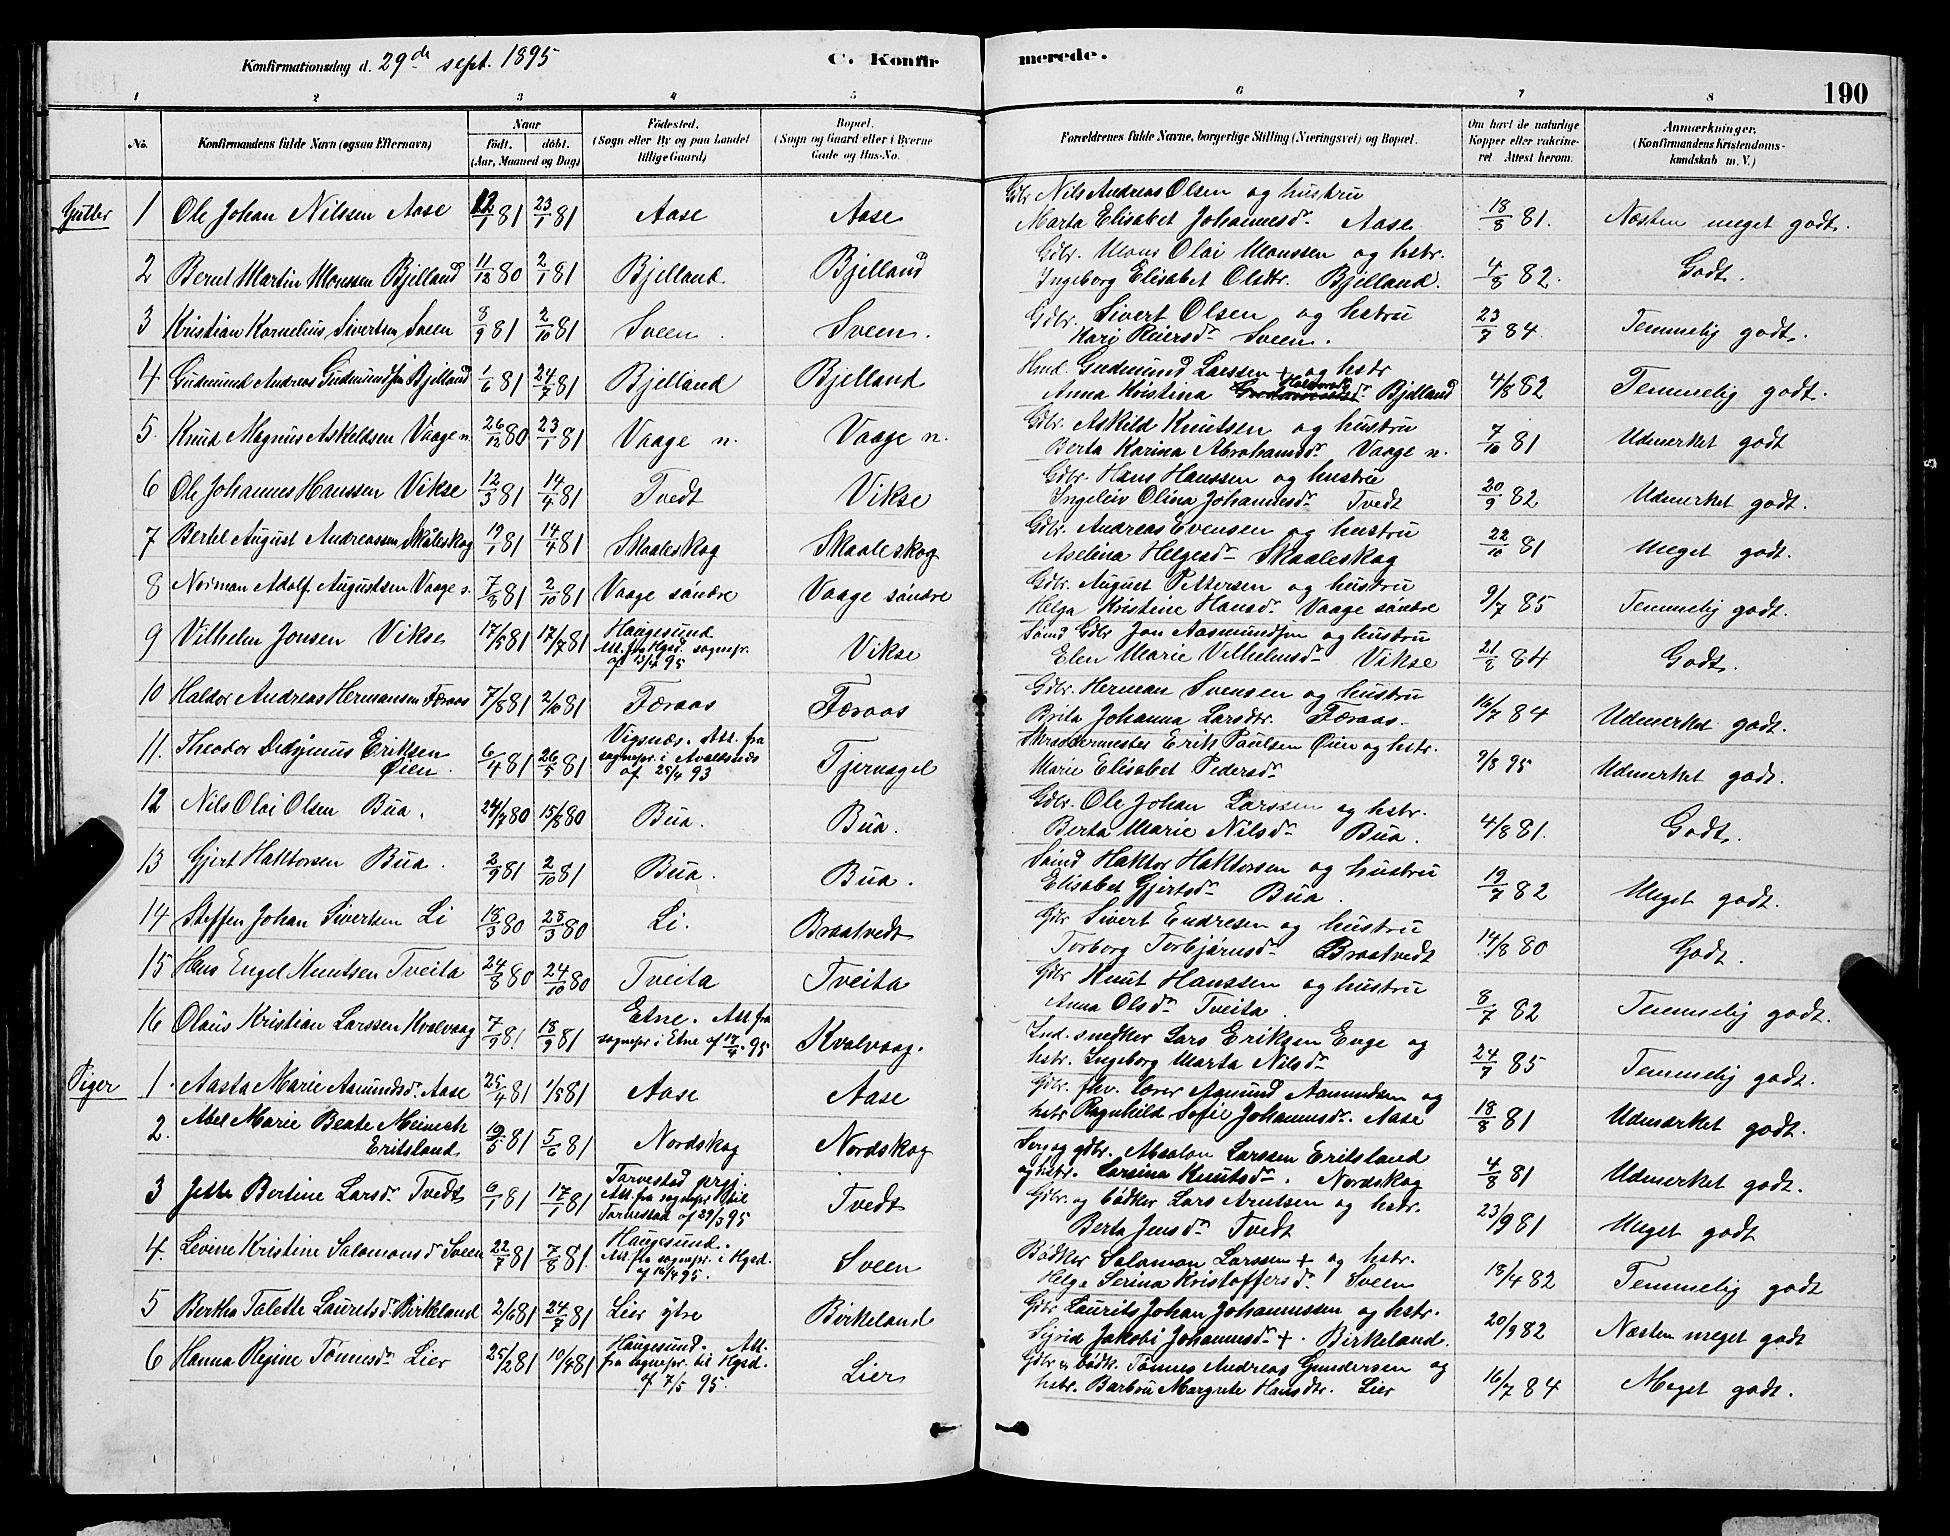 Konfirmationsdag d. 29de sept. 1895 C. Konfirmerede. 190
1 2 3 4 5 6 7 8
No. Konfirmandens fulde Navn (ogsaa Efternavn) Naar født. døbt. (Aar, Maaned og Dag) Fødested. (Sogn eller By og paa Landet tillige Gaard) Bopæl. (Sogn og Gaard eller i Byerne Gade og Hus-No. Forældrenes fulde Navne, borgerlige Stilling (Næringsvei) og Bopæl. Om havt de naturlige Kopper eller vakcineret Attest herom. Anmærkninger. (Konfirmandens Kristendomskundskab m. V.)
Gutter 1 Ole Johan Nilssen Aase 12/1 81 23/1 81 Aase Aase Gdbr Nils Andreas Olsen og hustru
Marta Elisabet Johannesdr Aase 18/8 81. Næsten meget godt.
2 Bernt Martin Monssen Bjelland 11/12 80 2/1 81 Bjelland Bjelland Gdbr. Mons Olai Monssen og hstr.
Ingeborg Elisabet Olsdtr. Bjelland. 4/8 82. Godt.
3 Kristian Kornelius Sivertsen Sveen 8/9 81 2/10 81 Sveen Sveen. Gdbr. Sivert Olsen og hstru
Kari Reiersdr Sveen. 23/7 84. Temmelig godt.
4 Gudmund Andreas Gudmundsen Bjelland 1/6 81 24/7 81 Bjelland Bjelland Hmd. Gudmund Larssen + og hstr
Anna Kristina Bjelland 4/8 82 Temmelig godt.
5. Knud Magnus Askeldsen Vaage n. 26/12 80 23/1 81 Vaage n. Vaage n. Gdbr. Askild Knutsen og hustru
Berta Karina Abrahamsdr Vaage n. 7/10 81 Udmerket godt
6 Ole Johannes Hanssen Vikse 12/3 81 14/4 81 Tvedt Vikse Gdbr. Hans Hanssen og hustru
Ingeleiv Olina Johannesdr Tvedt 20/9 82 Udmerket godt.
7 Bertel August Andreassen Skåleskog 19/1 81 14/4 81 Skaaleskog Skaaleskog Gdbr. Andreas Evensen og hustru
Aselina Helgesdr Skaaleskog 22/10 81 Meget godt.
8 Norman Adolf Augustsen Vaage s. 7/8 81 2/10 81 Vaage søndre Vaage søndre Gdbr. August Pettersen og hustru
Helga Kristine Hansdr Vaage søndre 9/7 85 Temmelig godt.
9 Vilhelm Jonsen Vikse 17/5 81 17/7 81 Haugesund
Att. fra Hgsd. sognepr.
af 13/2 95 Vikse Gdbr Jon Aasmundsen og hustru
Elen Marie Vilhelmsdr Vikse 21/8 84 Godt.
10 Haldor Andreas Hermansen Færaas 7/8 81 2/10 81 Færaas Færaas Gdbr. Herman Svensen og hustru
Brita Johanna Larsdtr. Færaas. 16/7 84 Udmerket godt.
11. Theodor Didymus Eriksen
Øien. 6/4 81 26/5 81 Vigsnæs. Att. fra
sognepr. i Avaldsnes
af 25/4 93 Tjernagel Skræddermester Erik Paulsen Øien og hstr.
Marie Elisabet Pedersdr 9/8 95 Udmerket godt.
12 Nils Olai Olsen Bua. 24/7 80 15/8 80 Bua. Bua. Gdbr. Ole Johan Larssen og hstr.
Berta Marie Nilsdr Bua. 4/8 81. Godt.
13 Gjert Haktorsen Bua. 2/9 81 2/10 81 Bua. Bua. Haktor Haktorsen og hustru
Elisabet Gjertsdr Bua. 19/7 82 Meget godt.
14 Steffen Johan Sivertsen Li 18/3 80 28/3 80 Li. Braatvedt Gdbr Sivert Endresen og hustru
Torborg Torbjørnsdr Braatvedt 14/8 80 Godt.
15 Hans Engel Knutsen Tveita 24/8 80 24/10 80 Tveita Tveita Gdbr Knut Hanssen og hustru
Anna Olsdr Tveita. 8/7 82 Temmelig godt.
16 Olaus Kristian Larssen Kvalvaag 7/9 81 18/9 81 Etne. Att. fra
sognepr i Etne af 17/4. 95 Kvalvaag. Ind. snedker Lars Eriksen Enge og
hstr. Ingeborg Marta Nilsdr 24/7 85 Temmelig godt.
Piger 1. Aasta Marie Aamundsdr Aase 25/4 81 1/5 81 Aase Aase Gdbr. fhv. lærer Aamund Aamundsen og
hstr Ragnhild Sofie Johannesdr. Aase 18/8 81 Udmærket godt.
2. Abel Marie Beate Meinich
Eritsland 19/5 81 5/6 81 Nordskog Nordskog og gdbr. Absalon Larssen Eritsland
og hstr. Larsina Knutsdr. Nordskog 4/8 81 Udmerket godt.
3 Jette Bertine Larsdr Tvedt 6/1 81 17/1 81 Torvestad prgj.
Att. fra sognepr til
Torvestad af 29/3 95 Tvedt Gdbr. og bødker Lars Arntsen og hstr.
Berta Jensdr Tvedt 23/9 81 Meget godt
4. Levine Kristine Salomonsdr Sveen 22/7 81 7/8 81. Haugesund.
Att. fra sognepr. i Hgsd.
af 16/4 95. Sveen Bødker Salomon Larssen + og hstr.
Helga Serina Kristoffersdr Sveen 18/4 82 Temmelig godt
5 Bertha Talette Lauritsdr Birkeland 2/6 81 24/7 81 Lier ytre Birkeland Gdbr Laurits Johan Johannessen og hstr.
Sigrid Jakobi Johannesdr +. Birkeland. 20/9 82 Næsten meget godt
6 Hanna Regine Tønnesdr Lier 25/2 81 10/4 81 Haugesund. Att.
fra sognepr. til Hgsd.
af 7/5 95. Lier Gdbr & bødk. Tønnes Andreas Gundersen og
hstr. Barbru Margrete Hansdtr. Lier 16/7 84 Meget godt.